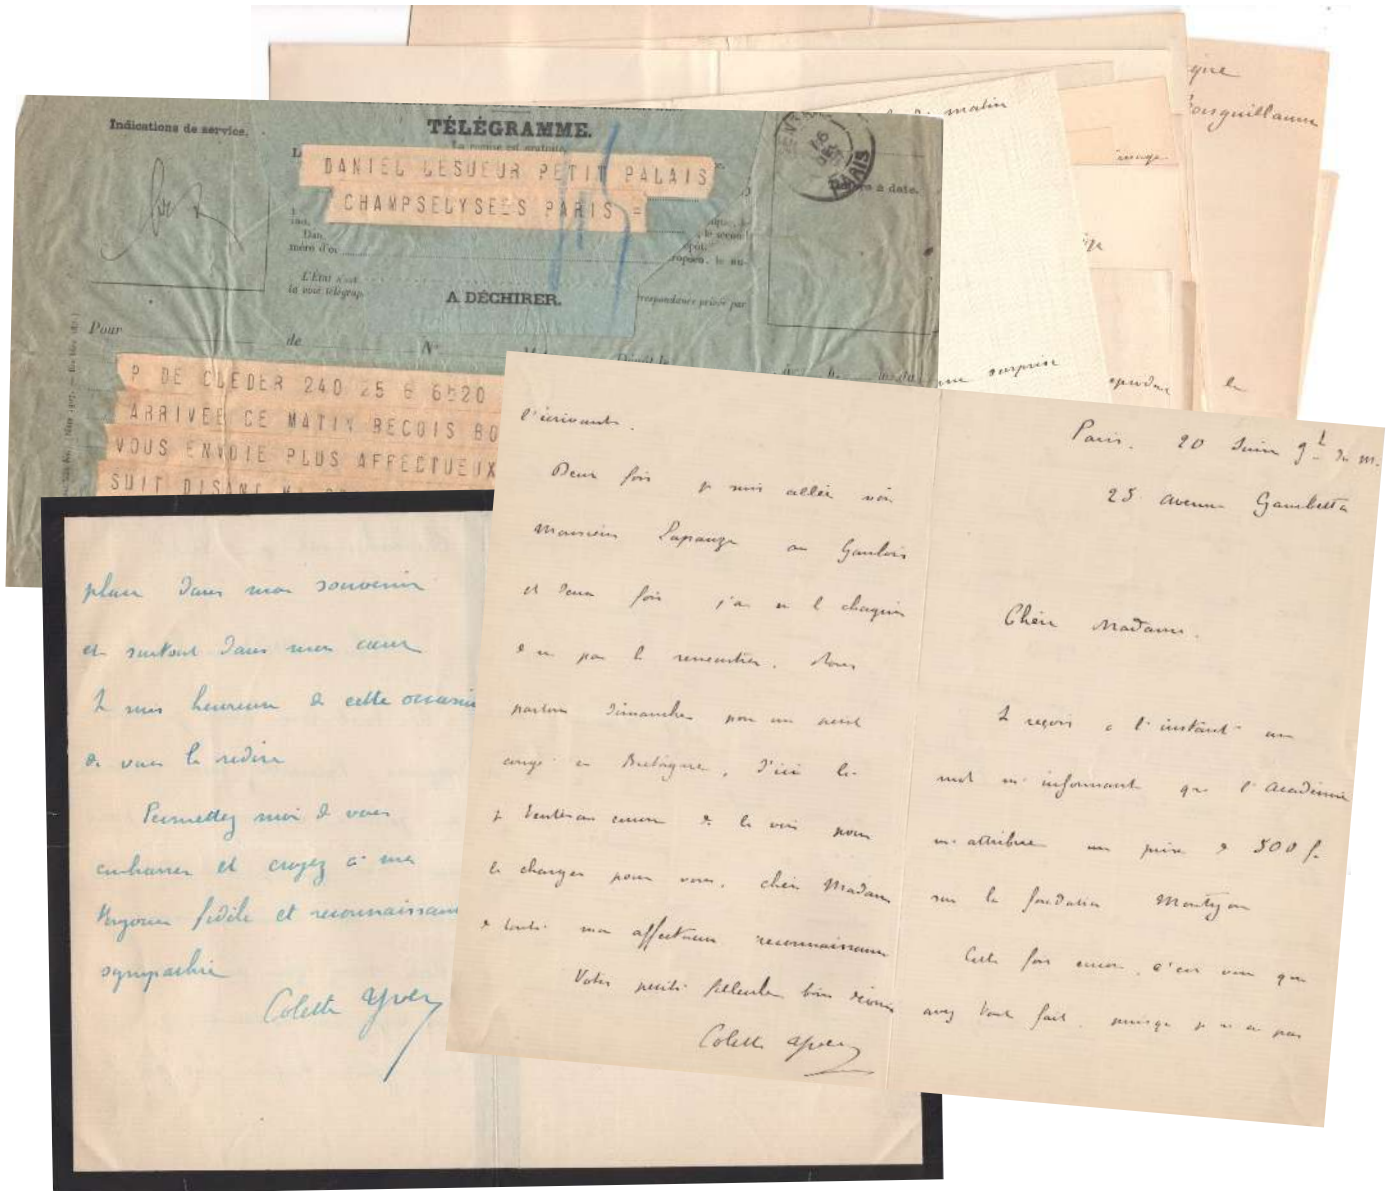 que
Bousquillaume
matin
image
une surprise
reproduire
Indications de service.
TÉLÉGRAMME.
La remise est gratuite.
DANIEL LESUEUR PETIT PALAIS
CHAMPSELYSEES PARIS =
PARIS
à date.
L'État n'est
la voie télégrap
respondance privée par
A DÉCHIRER.
Pour
de
N°
Dépôt le
P DE CLEDER 240 25 6 6520
ARRIVEE CE MATIN RECOIS BO
VOUS ENVOIE PLUS AFFECTUEUX
SUIT DISANT
place dans mon souvenir
et surtout dans mon cœur
Je suis heureuse de cette occasion
de vous le redire
Permettez moi de vous
embrasser et croyez à ma
toujours fidèle et reconnaissante
sympathie
Colette Yver
l'écrivante.
Deux fois je suis allée voir
Monsieur Lapauze au Gaulois
et deux fois j'ai eu le chagrin
de ne pas le rencontrer. Nous
partons dimanche pour un petit
congé en Bretagne, d'ici là
je tenterai encore de le voir pour
le charger pour vous, chère Madame
de toute mon affectueuse reconnaissance
Votre petite filleule bien dévouée
Colette Yver
Paris. 20 Juin
25 avenue Gambetta
Chère Madame.
Je reçois à l'instant un
mot m'informant que l'Académie
m'attribue un prix de 500 f.
sur la fondation Montyon
Cette fois encore, c'est vous qui
avez tout fait, puisque je n'ai pas